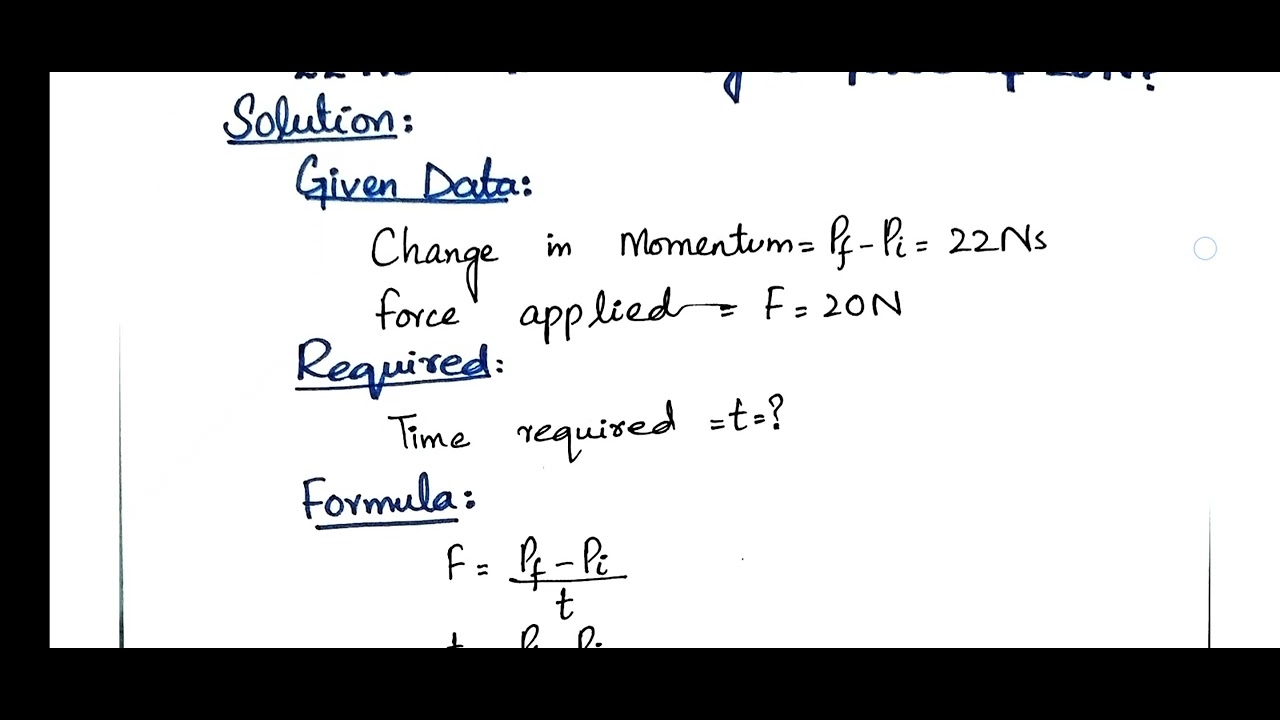 Solution:
Given Data:
Change in Momentum = Pf - Pi = 22Ns
force applied = F = 20N
Required:
Time required = t = ?
Formula:
F = Pf - Pi / t